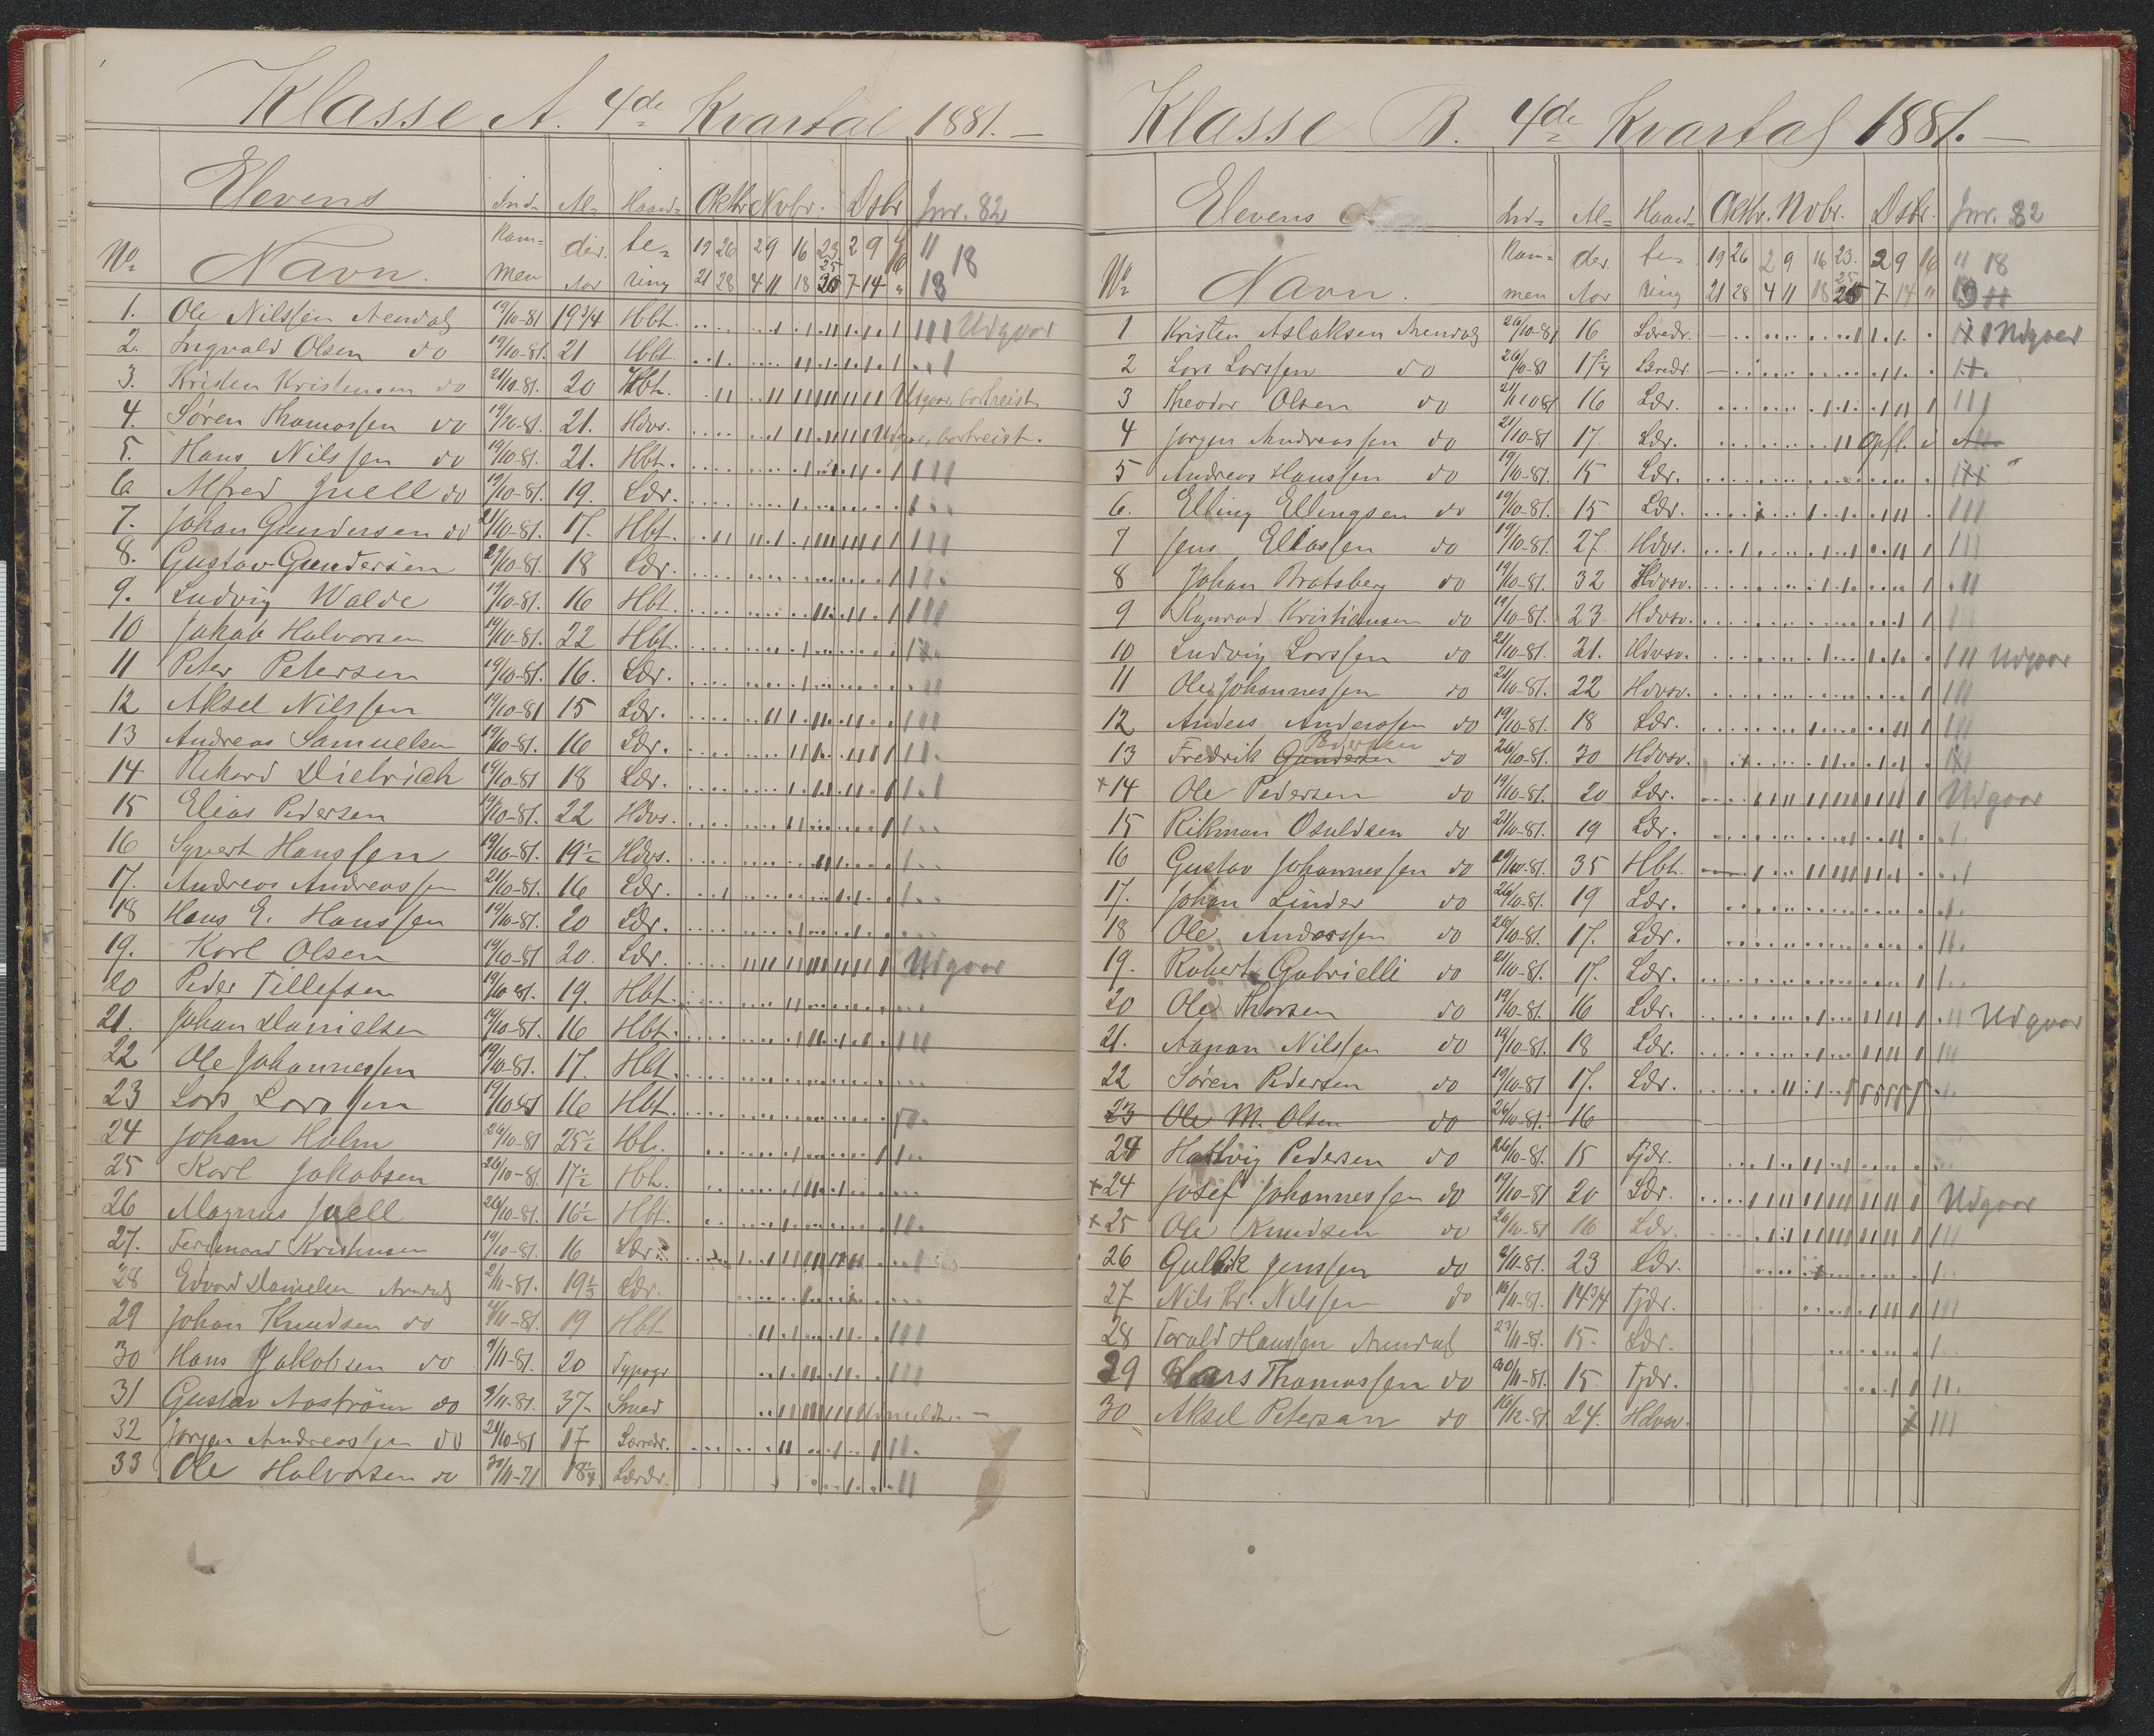 Klasse A. 4de Kvartal 1881.
Elevens Ind- Al- Haand- Oktbr Nvbr. Dsbr Jnr. 82
No Navn. kom- der. te- 19 26 2 9 16 23 2 9 16 11 18
men Aar ring 21 28 4 11 18 25 7 14 " 13
1. Ole Nilssen Arendal 19/10-81 19 3/4 Hbt. Udgaar
2. Ingvald Olsen do 19/10-81. 21 Hbt.
3. Kristen Kristensen do 21/10-81. 20 Hbt. Udgaar, bortreist
4. Søren Thomassen do 19/10-81. 21. Hdvs. Udgaar, bortreist.
5. Hans Nilssen do 19/10-81. 21. Hbt.
6. Alfred Juell do 19/10-81. 19. Ldr.
7. Johan Gundersen do 21/10-81. 17. Hbt.
8. Gustav Gundersen 21/10-81. 18 Ldr.
9. Ludvig Walde 19/10-81. 16 Hbt.
10 Jakob Halvorsen 19/10-81. 22 Hbt.
11 Peter Petersen 19/10-81. 16. Ldr.
12 Aksel Nilssen 19/10-81 15 Ldr.
13 Andreas Samuelsen 19/10-81. 16 Ldr.
14 Rikard Dietrich 19/10-81 18 Ldr.
15 Elias Pedersen 19/10-81. 22 Hdvs.
16 Syvert Hanssen 19/10-81. 19 1/2 Hdvs.
17. Andreas Andreassen 21/10-81. 16 Ldr.
18 Hans E. Hanssen 19/10-81. 20 Ldr.
19. Karl Olsen 19/10-81 20. Ldr. Udgaar
20 Peder Tellefsen 19/10-81. 19. Hbt.
21. Johan Danielsen 19/10-81. 16 Hbt.
22 Ole Johannessen 19/10-81. 17. Hbt.
23 Lars Larssen 19/10-81 16 Hbt.
24 Johan Holm 26/10-81 25 1/2 Hbt.
25 Karl Jakobsen 26/10-81 17 1/2 Hbt.
26 Magnus Juell 26/10-81. 16 1/2 Hbt.
27. Ferdinand Kristensen 19/10-81. 16 Ldr.
28 Edvard Danielsen Arendal 2/11-81. 19 1/2 Ldr.
29 Johan Knudsen do 4/11-81. 19 Hbt
30 Hans Jakobsen do 9/11-81. 20 Typogr
31 Gustav Aaström do 9/11-81. 37 Smed Udmeldt.
32 Jørgen Andreassen do 21/10-81 17 Læredr.
33 Ole Halvorsen do 30/11-71 18 1/4 Læredr.
Klasse B. 4de Kvartal 1881.
Elevens Ind- Al- Haand- Oktbr. Nvbr. Dsbr. Jnr. 82
No Navn. kom- der. te- 19 26 2 9 16 23. 2 9 16 11 18
men Aar ring 21 28 4 11 18 25 7 14 "
1. Kristen Aslaksen Arendal 26/10-81 16 Læredr. Udgaar
2 Lars Larssen do 26/10-81 17 1/4 Læredr.
3 Theodor Olsen do 21/10 81 16 Ldr.
4 Jørgen Andreassen do 21/10-81 17. Ldr. Opfl. i A
5 Andreas Hanssen do 19/10-81. 15 Ldr.
6. Elling Ellingsen do 19/10-81. 15 Ldr.
7 Jens Eliassen do 19/10-81. 27 Hdvs.
8 Johan Bratsberg do 19/10-81. 32 Hdvsv.
9 Konrad Kristiansen do 19/10-81. 23 Hdvsv.
10 Ludvig Larssen do 21/10-81. 21. Hdvsv. Udgaar
11 Ole Johannessen do 21/10-81. 22 Hdvsv.
12 Anders Anderssen do 19/10-81. 18 Ldr.
Pedersen
13 Fredrik Gundersen do 26/10-81. 30 Hdvsv.
+14 Ole Pedersen do 19/10-81. 20 Ldr. Udgaar
15 Rikman Osuldsen do 21/10-81. 19 Ldr.
16 Gustav Johannessen do 21/10-81. 35 Hbt.
17. Johan Linder do 26/10-81. 19 Ldr.
18 Ole Anderssen do 26/10-81. 17. Ldr.
19. Robert Gabrielli do 21/10-81. 17. Ldr.
20 Ole Thorsen do 19/10-81. 16 Ldr. Udgaar
21. Aanon Nilssen do 19/10-81. 18 Ldr.
22 Søren Pedersen do 19/10-81 17. Ldr.
23 Ole M. Olsen do 26/10-81. 16
24 Hartvig Pedersen do 26/10-81. 15 Tjdr.
+24 Josef Johannessen do 19/10-81 20 Ldr. Udgaar
+25 Ole Knudsen do 26/10-81 16 Ldr.
26 Gulbik Jenssen do 2/11-81. 23 Ldr.
27 Nils Kr. Nilssen do 16/11-81. 14 3/4 Tjdr.
28 Torald Hanssen Arendal 23/11-81. 15- Ldr.
29 Lars Thomassen do 30/11-81. 15. Tjdr.
30 Aksel Petersen do 16/12-81. 24. Hdvsv.